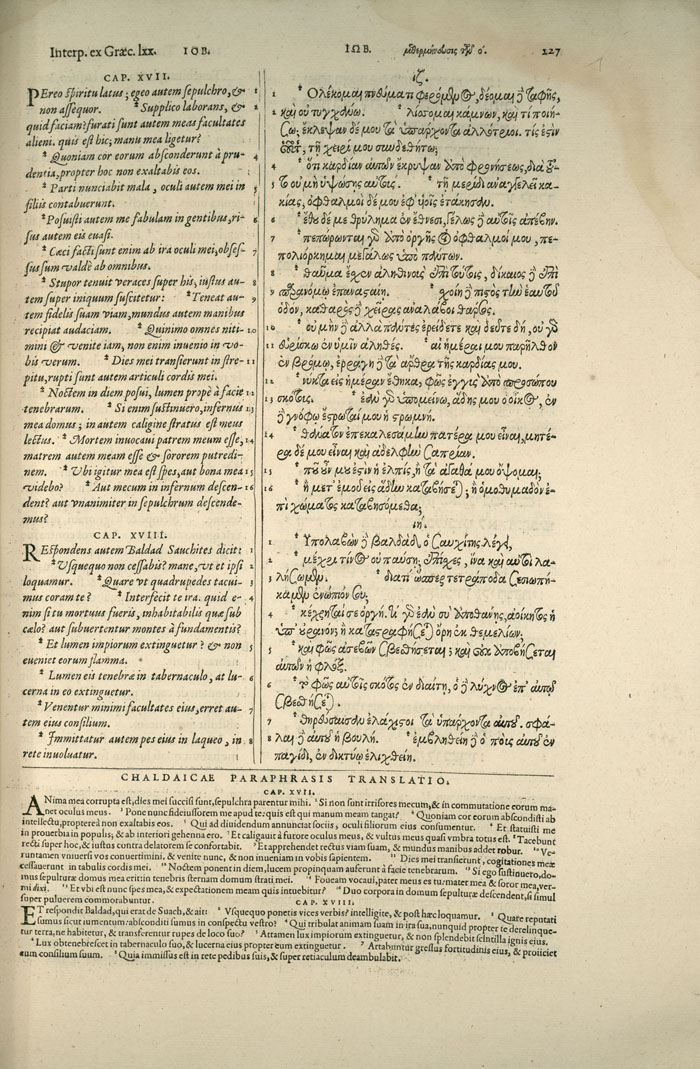 Interp. ex Græc. lxx. IOB. ΙΩΒ. 227
CAP. XVII.
PEreo spiritu latus; egeo autem sepulchro, &
non assequor. Supplico laborans, &
quid faciam? furati sunt autem meas facultates
alieni. quis est hic; manu mea ligetur?
Quoniam cor eorum absconderunt à pru-
dentia, propter hoc non exaltabis eos.
Parti nunciabit mala, oculi autem mei in
filiis contabuerunt.
Posuisti autem me fabulam in gentibus, ri-
sus autem eis euasi.
Cæci facti sunt enim ab ira oculi mei, obses-
sus sum valdè ab omnibus.
Stupor tenuit veraces super his, iustus au-
tem super iniquum suscitetur: Teneat au-
tem fidelis suam viam, mundus autem manibus
recipiat audaciam. Quinimo omnes niti-
mini & venite iam, non enim inuenio in vo-
bis verum. Dies mei transierunt in stre-
pitu, rupti sunt autem articuli cordis mei.
Noctem in diem posui, lumen propè à facie
tenebrarum. Si enim sustinuero, infernus
mea domus; in autem caligine stratus est meus
lectus. Mortem inuocaui patrem meum esse,
matrem autem meam esse & sororem putredi-
nem. Vbi igitur mea est spes, aut bona mea
videbo? Aut mecum in infernum descen-
dent? aut vnanimiter in sepulchrum descende-
mus?
CAP. XVIII.
REspondens autem Baldad Sauchites dicit:
Vsquequo non cessabis? mane, vt et ipsi
loquamur. Quare vt quadrupedes tacui-
mus coram te? Interfecit te ira. quid e-
nim si tu mortuus fueris, inhabitabilis quæ sub
cælo? aut subuertentur montes à fundamentis?
Et lumen impiorum extinguetur? & non
eueniet eorum flamma.
Lumen eius tenebræ in tabernaculo, at lu-
cerna in eo extinguetur.
Venentur minimi facultates eius, erret au-
tem eius consilium.
Immittatur autem pes eius in laqueo, in
rete inuoluatur.
ιζ.
1 Ὀλέκομαι πνεύματι φερόμενος, δέομαι δὲ ταφῆς,
2 καὶ οὐ τυγχάνω. λίσσομαι κάμνων, καὶ τί ποιή-
σω; ἔκλεψαν δέ μου τὰ ὑπάρχοντα ἀλλότριοι. τίς ἐστιν
οὗτος, τῇ χειρί μου συνδεθήτω;
4 ὅτι καρδίαν αὐτῶν ἔκρυψας ἀπὸ φρονήσεως, διὰ τοῦ-
5 το οὐ μὴ ὑψώσῃς αὐτούς. τῇ μερίδι ἀναγγελεῖ κα-
κίας, ὀφθαλμοὶ δέ μου ἐφ' υἱοῖς ἐτάκησαν.
6 ἔθου δέ με θρύλημα ἐν ἔθνεσι, γέλως δὲ αὐτοῖς ἀπέβην.
7 πεπώρωνται γὰρ ἀπὸ ὀργῆς οἱ ὀφθαλμοί μου, πε-
πολιόρκημαι μεγάλως ὑπὸ πάντων.
8 θαῦμα ἔσχεν ἀληθινοὺς ἐπὶ τούτοις, δίκαιος δὲ ἐπὶ
9 παρανόμῳ ἐπανασταίη. σχοίη δὲ πιστὸς τὴν ἑαυτοῦ
ὁδὸν, καθαρὸς δὲ χεῖρας ἀναλάβοι θάρσος.
10 οὐ μὴν δὲ ἀλλὰ πάντες ἐρείδετε καὶ δεῦτε δὴ, οὐ γὰρ
11 εὑρίσκω ἐν ὑμῖν ἀληθές. αἱ ἡμέραι μου παρῆλθον
ἐν βρόμῳ, ἐρράγη δὲ τὰ ἄρθρα τῆς καρδίας μου.
12 νύκτα εἰς ἡμέραν ἔθηκα, φῶς ἐγγὺς ἀπὸ προσώπου
13 σκότους. ἐὰν γὰρ ὑπομείνω, ᾅδης μου ὁ οἶκος, ἐν
δὲ γνόφῳ ἔστρωταί μου ἡ στρωμνή.
14 θάνατον ἐπεκαλεσάμην πατέρα μου εἶναι, μητέ-
ρα δέ μου εἶναι καὶ ἀδελφὴν σαπρίαν.
15 ποῦ οὖν μου ἐστὶν ἡ ἐλπὶς, ἢ τὰ ἀγαθά μου ὄψομαι;
16 ἢ μετ' ἐμοῦ εἰς ᾅδην καταβήσεται; ἢ ὁμοθυμαδὸν ἐ-
πὶ χώματος καταβησόμεθα;
ιη.
1 Ὑπολαβὼν δὲ Βαλδὰδ ὁ Σαυχίτης λέγει,
2 μέχρι τίνος οὐ παύσῃ; ἐπίσχες, ἵνα καὶ αὐτοὶ λα-
3 λήσωμεν. διατί ὥσπερ τετράποδα σεσιωπή-
καμεν ἐνώπιόν σου;
4 κέχρηταί σε ὀργή. τί γὰρ ἐὰν σὺ ἀποθάνῃς, ἀοίκητος ἡ
ὑπ' οὐρανόν; ἢ καταστραφήσεται ὄρη ἐκ θεμελίων;
5 καὶ φῶς ἀσεβῶν σβεσθήσεται; καὶ οὐκ ἀποβήσεται
αὐτῶν ἡ φλόξ.
6 τὸ φῶς αὐτοῦ σκότος ἐν διαίτῃ, ὁ δὲ λύχνος ἐπ' αὐτῷ
σβεσθήσεται.
7 θηρεύσαισαν ἐλάχιστοι τὰ ὑπάρχοντα αὐτοῦ. σφά-
8 λαι δὲ αὐτοῦ ἡ βουλή. ἐμβληθείη δὲ ὁ ποῦς αὐτοῦ ἐν
παγίδι, ἐν δικτύῳ ἑλιχθείη.
CHALDAICAE PARAPHRASIS TRANSLATIO.
CAP. XVII.
ANima mea corrupta est, dies mei succisi sunt, sepulchra parentur mihi. Si non sunt irrisores mecum, & in commutatione eorum ma-
net oculus meus. Pone nunc fideiussorem me apud te: quis est qui manum meam tangat? Quoniam cor eorum abscondisti ab
intellectu, propterea non exaltabis eos. Qui ad diuidendum annunciat sociis, oculi filiorum eius consumentur. Et statuisti me
in prouerbia in populis, & ab interiori gehenna ero. Et caligauit à furore oculus meus, & vultus meus quasi vmbra totus est. Tacebunt
recti super hoc, & iustus contra delatorem se confortabit. Et apprehendet rectus viam suam, & mundus manibus addet robur. Ve-
runtamen vniuersi vos conuertimini, & venite nunc, & non inueniam in vobis sapientem. Dies mei transierunt, cogitationes meæ
cessauerunt. in tabulis cordis mei. Noctem ponent in diem, lucem propinquam auferunt à facie tenebrarum. Si ego sustinuero, do-
mus sepulturæ domus mea erit: in tenebris sternam domum strati mei. Foueam vocaui, pater meus es tu: mater mea & soror mea, ver-
mi dixi. Et vbi est nunc spes mea, & expectationem meam quis intuebitur? Duo corpora in domum sepulturæ descendent, si simul
super puluerem commorabuntur.
CAP. XVIII.
ET respondit Baldad, qui erat de Suach, & ait: Vsquequo ponetis vices verbis? intelligite, & post hæc loquamur. Quare reputati
sumus sicut iumentum: absconditi sumus in conspectu vestro? Qui tribulat animam suam in ira sua, nunquid propter te derelinque-
tur terra, ne habitetur, & transferentur rupes de loco suo? Attamen lux impiorum extinguetur, & non splendebit scintilla ignis eius.
Lux obtenebrescet in tabernaculo suo, & lucerna eius propter eum extinguetur. Arctabuntur gressus fortitudinis eius, & proiiciet
eum consilium suum. Quia immissus est in rete pedibus suis, & super retiaculum deambulabit.